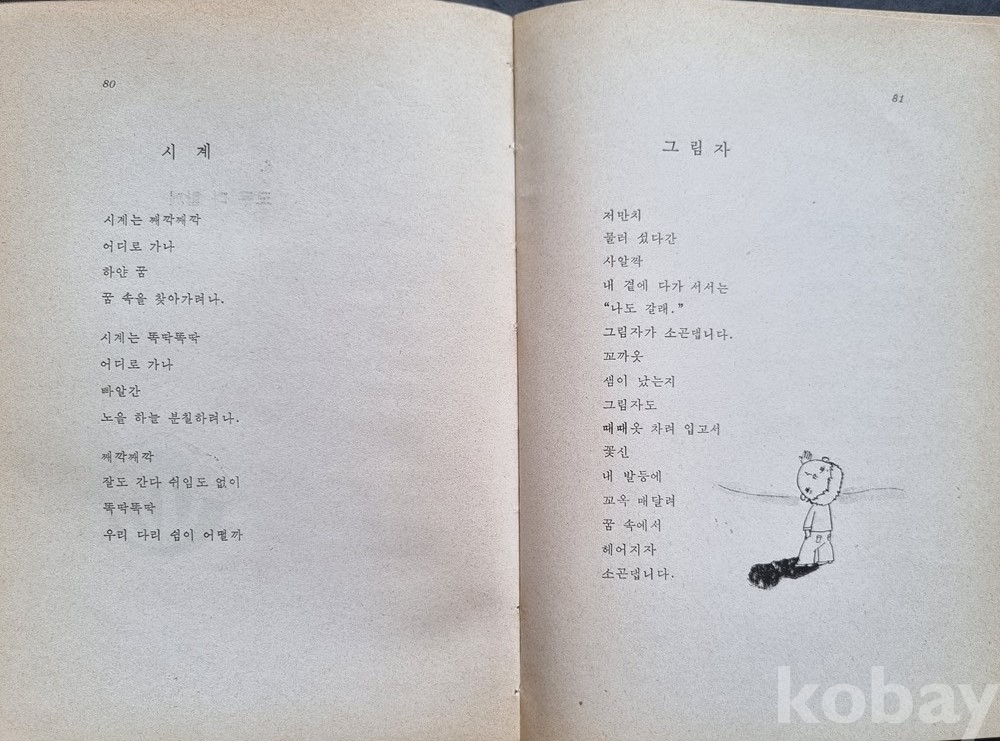 80
시 계
시계는 째깍째깍
어디로 가나
하얀 꿈
꿈 속을 찾아가려나.
시계는 똑딱똑딱
어디로 가나
빠알간
노을 하늘 분칠하려나.
째깍째깍
잘도 간다 쉬임도 없이
똑딱똑딱
우리 다리 쉼이 어떨까
81
그 림 자
저만치
물러 섰다간
사알짝
내 곁에 다가 서서는
“나도 갈래.”
그림자가 소곤댑니다.
꼬까옷
샘이 났는지
그림자도
때때옷 차려 입고서
꽃신
내 발등에
꼬옥 매달려
꿈 속에서
헤어지자
소곤댑니다.
kobay